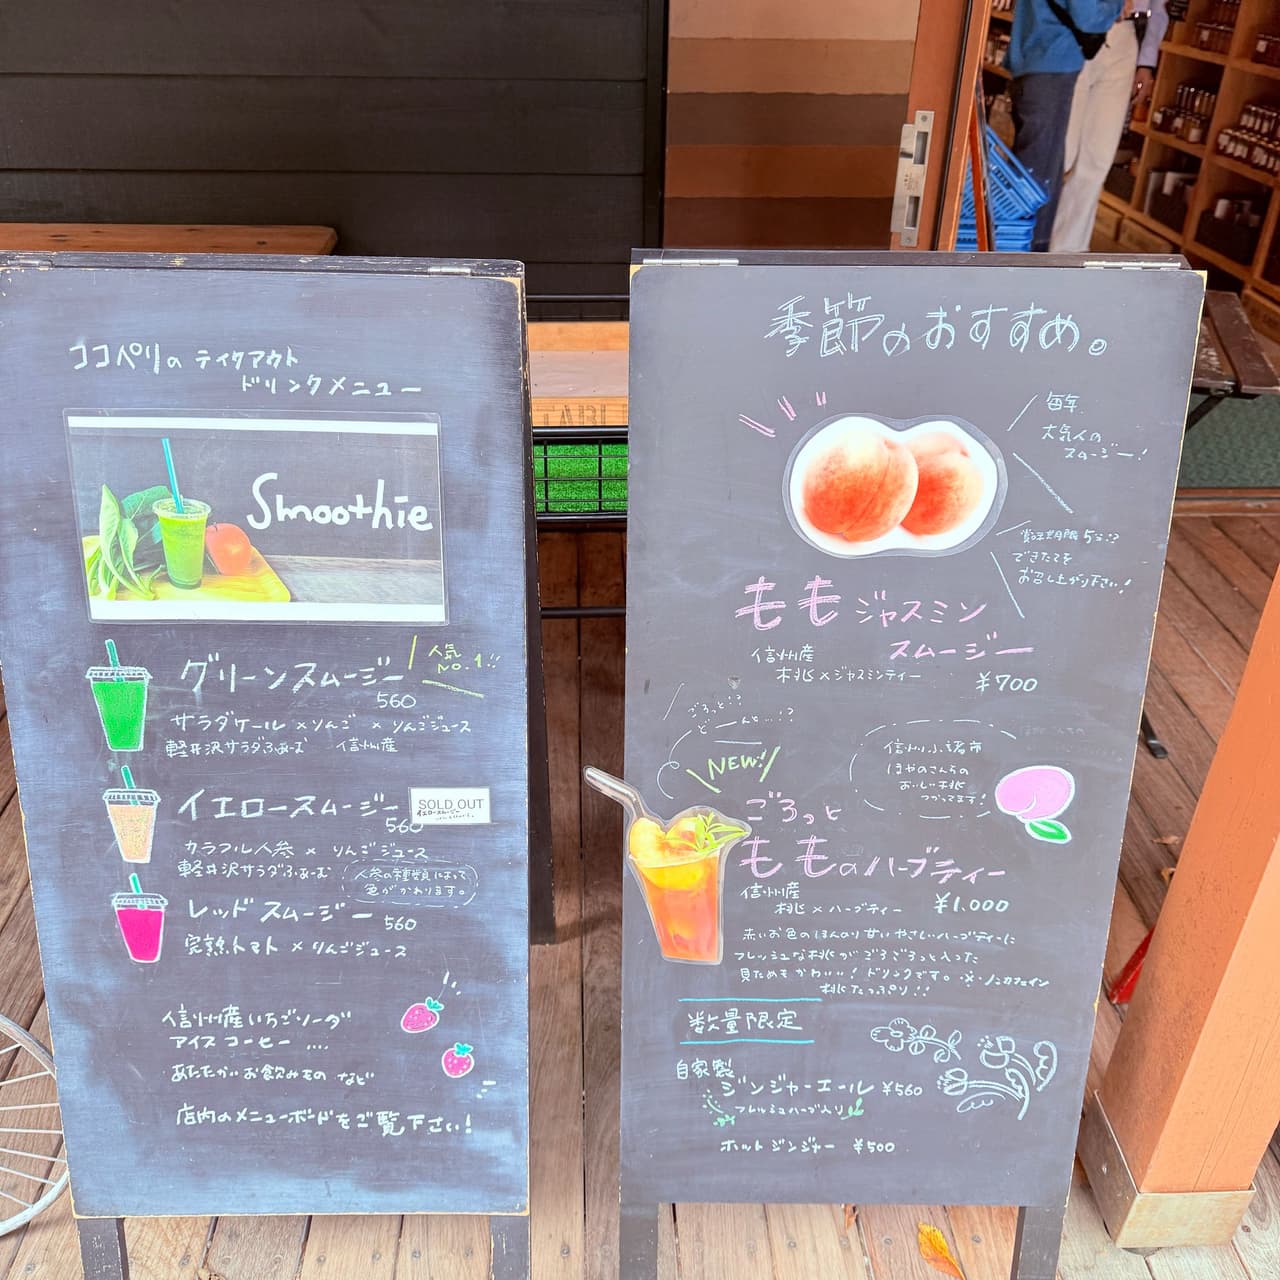 ココペリの テイクアウト
ドリンクメニュー
Smoothie
グリーンスムージー
人気
NO.1!!
560
サラダケール × りんご × りんごジュース
軽井沢サラダふぁーむ 信州産
イエロースムージー
SOLD OUT
イエロースムージー
560
カラフル人参 × りんごジュース
軽井沢サラダふぁーむ
人参の種類によって
色がかわります。
レッドスムージー
560
完熟トマト × りんごジュース
信州産いちごソーダ
アイスコーヒー ....
あたたかいお飲みもの など
店内のメニューボードをご覧下さい!
季節のおすすめ。
毎年
大人気の
スムージー!
賞味期限 5分!?
できたてを
お召し上がり下さい!
もも ジャスミン
スムージー
信州産
桃×ジャスミンティー
¥700
ごろっと!?
どーんと...!?
NEW!
信州小諸市
ほやのさんちの
おいしい桃
つかってます!
ごろっと
ももの ハーブティー
信州産
桃×ハーブティー
¥1,000
赤いお色のほんのり甘いやさしいハーブティーに
フレッシュな桃がごろごろっと入った
見ためもかわいい!ドリンクです。※ノンカフェイン
桃たっぷり!!
数量限定
自家製
ジンジャーエール ¥560
フレッシュハーブ入り
ホットジンジャー ¥500
TABLE